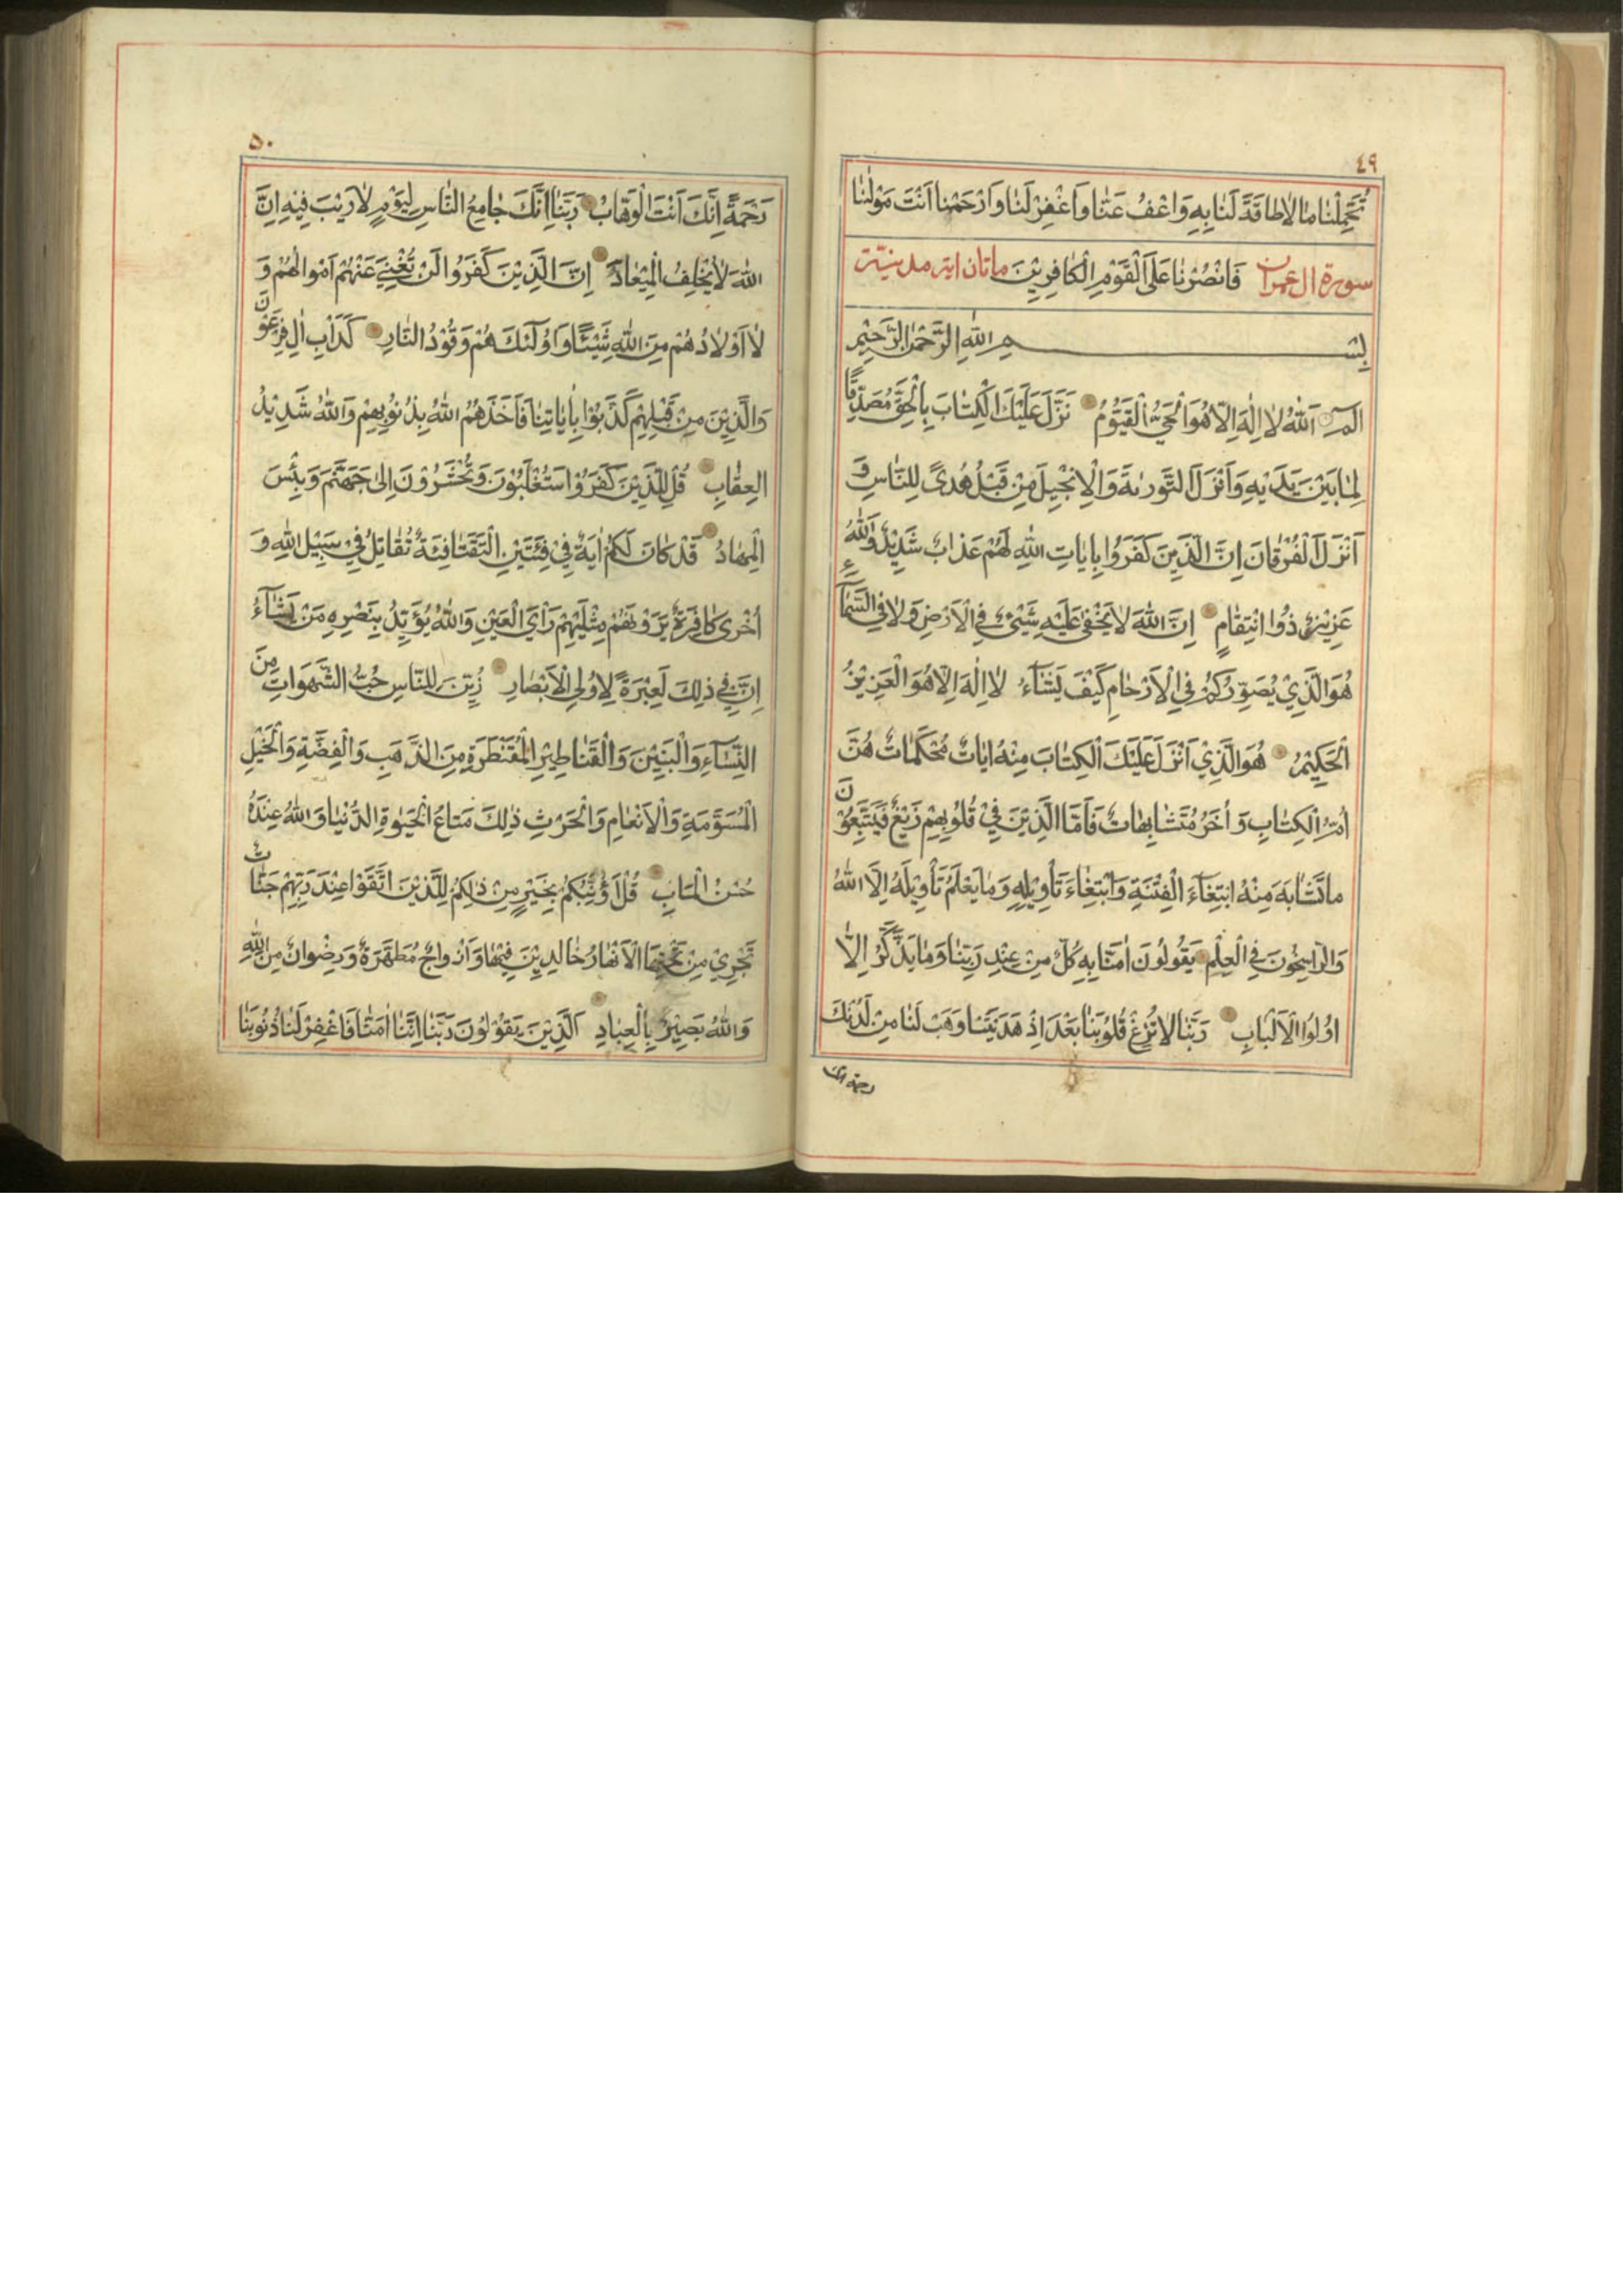 ٤٩
تُحَمِّلْنٰا مٰا لاٰ طاقَةَ لَنٰا بِهِ وَاعْفُ عَنّٰا وَاغْفِرْ لَنٰا وَارْحَمْنٰا اَنْتَ مَوْلٰنٰا
سورة ال عمران فَانْصُرْنٰا عَلَى الْقَوْمِ الْكٰافِرِيْنَ ماتان اية مدنية
بِسْمِ اللّٰهِ الرَّحْمٰنِ الرَّحِيْمِ
الٓمٓ اَللّٰهُ لاٰ اِلٰهَ اِلاّٰ هُوَ الْحَيُّ الْقَيُّوْمُ نَزَّلَ عَلَيْكَ الْكِتٰابَ بِالْحَقِّ مُصَدِّقًا
لِمٰا بَيْنَ يَدَيْهِ وَاَنْزَلَ التَّوْرٰىةَ وَالْاِنْجِيْلَ مِنْ قَبْلُ هُدًى لِلنّٰاسِ وَ
اَنْزَلَ الْفُرْقٰانَ اِنَّ الَّذِيْنَ كَفَرُوا بِاٰيٰاتِ اللّٰهِ لَهُمْ عَذٰابٌ شَدِيْدٌ وَاللّٰهُ
عَزِيْزٌ ذُوا انْتِقٰامٍ اِنَّ اللّٰهَ لاٰ يَخْفٰى عَلَيْهِ شَيْئٌ فِي الْاَرْضِ وَلاٰ فِي السَّمٰآءِ
هُوَ الَّذِيْ يُصَوِّرُكُمْ فِي الْاَرْحٰامِ كَيْفَ يَشَآءُ لاٰ اِلٰهَ اِلاّٰ هُوَ الْعَزِيْزُ
الْحَكِيْمُ هُوَ الَّذِيْ اَنْزَلَ عَلَيْكَ الْكِتٰابَ مِنْهُ اٰيٰاتٌ مُحْكَمٰاتٌ هُنَّ
اُمُّ الْكِتٰابِ وَ اُخَرُ مُتَشٰابِهٰاتٌ فَاَمَّا الَّذِيْنَ فِيْ قُلُوْبِهِمْ زَيْغٌ فَيَتَّبِعُوْنَ
مٰا تَشٰابَهَ مِنْهُ ابْتِغٰآءَ الْفِتْنَةِ وَابْتِغٰاءَ تَأْوِيْلِهِ وَمٰا يَعْلَمُ تَأْوِيْلَهُ اِلَّا اللّٰهُ
وَالرّٰاسِخُوْنَ فِي الْعِلْمِ يَقُوْلُوْنَ اٰمَنّٰا بِهِ كُلٌّ مِنْ عِنْدِ رَبِّنٰا وَمٰا يَذَّكَّرُ اِلاّٰ
اُولُوا الْاَلْبٰابِ رَبَّنٰا لاٰ تُزِغْ قُلُوْبَنٰا بَعْدَ اِذْ هَدَيْتَنٰا وَهَبْ لَنٰا مِنْ لَدُنْكَ
رحمة انك
٥٠
رَحْمَةً اِنَّكَ اَنْتَ الْوَهّٰابُ رَبَّنٰا اِنَّكَ جٰامِعُ النّٰاسِ لِيَوْمٍ لاٰ رَيْبَ فِيْهِ اِنَّ
اللّٰهَ لاٰ يُخْلِفُ الْمِيْعٰادَ اِنَّ الَّذِيْنَ كَفَرُوْا لَنْ تُغْنِيَ عَنْهُمْ اَمْوٰالُهُمْ وَ
لاٰ اَوْلاٰدُهُمْ مِنَ اللّٰهِ شَيْئًا وَاُولٰئِكَ هُمْ وَقُوْدُ النّٰارِ كَدَأْبِ اٰلِ فِرْعَوْنَ
وَالَّذِيْنَ مِنْ قَبْلِهِمْ كَذَّبُوْا بِاٰيٰاتِنٰا فَاَخَذَهُمُ اللّٰهُ بِذُنُوْبِهِمْ وَاللّٰهُ شَدِيْدُ
الْعِقٰابِ قُلْ لِلَّذِيْنَ كَفَرُوْا سَتُغْلَبُوْنَ وَتُحْشَرُوْنَ اِلٰى جَهَنَّمَ وَبِئْسَ
الْمِهٰادُ قَدْ كٰانَ لَكُمْ اٰيَةٌ فِيْ فِئَتَيْنِ الْتَقَتٰا فِئَةٌ تُقٰاتِلُ فِيْ سَبِيْلِ اللّٰهِ وَ
اُخْرٰى كٰافِرَةٌ يَرَوْنَهُمْ مِثْلَيْهِمْ رَأْيَ الْعَيْنِ وَاللّٰهُ يُؤَيِّدُ بِنَصْرِهِ مَنْ يَشٰآءُ
اِنَّ فِيْ ذٰلِكَ لَعِبْرَةً لِاُولِي الْاَبْصٰارِ زُيِّنَ لِلنّٰاسِ حُبُّ الشَّهَوٰاتِ مِنَ
النِّسٰآءِ وَالْبَنِيْنَ وَالْقَنٰاطِيْرِ الْمُقَنْطَرَةِ مِنَ الذَّهَبِ وَالْفِضَّةِ وَالْخَيْلِ
الْمُسَوَّمَةِ وَالْاَنْعٰامِ وَالْحَرْثِ ذٰلِكَ مَتٰاعُ الْحَيٰوةِ الدُّنْيٰا وَاللّٰهُ عِنْدَهُ
حُسْنُ الْمَاٰبِ قُلْ اَؤُنَبِّئُكُمْ بِخَيْرٍ مِنْ ذٰلِكُمْ لِلَّذِيْنَ اتَّقَوْا عِنْدَ رَبِّهِمْ جَنّٰاتٌ
تَجْرِيْ مِنْ تَحْتِهَا الْاَنْهٰارُ خٰالِدِيْنَ فِيْهٰا وَاَزْوٰاجٌ مُطَهَّرَةٌ وَرِضْوٰانٌ مِنَ اللّٰهِ
وَاللّٰهُ بَصِيْرٌ بِالْعِبٰادِ اَلَّذِيْنَ يَقُوْلُوْنَ رَبَّنٰا اِنَّنٰا اٰمَنّٰا فَاغْفِرْ لَنٰا ذُنُوْبَنٰا